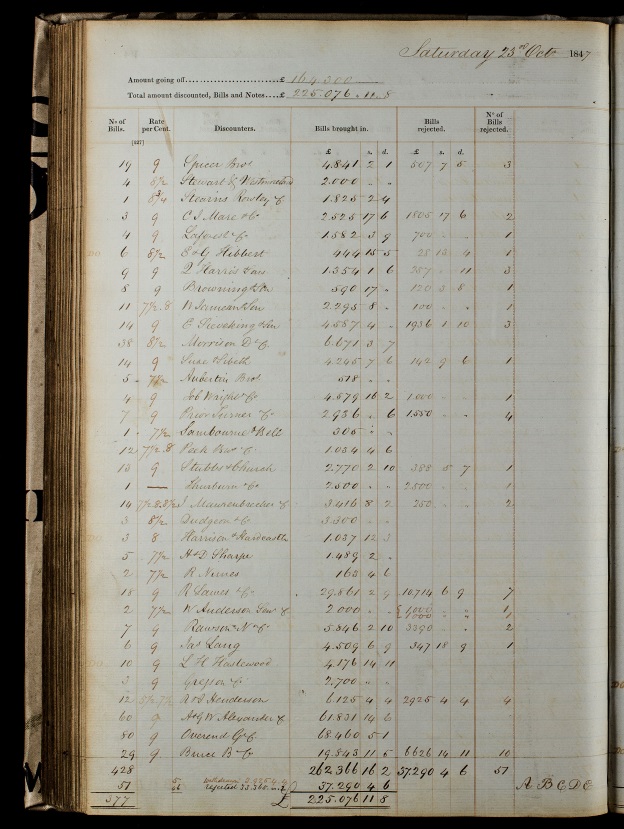 Saturday 23rd Octr 1847
Amount going off £ 164,300
Total amount discounted, Bills and Notes £ 225.076 . 11. 8
No of Bills. Rate per Cent. Discounters. Bills brought in. Bills rejected. No of Bills rejected.
[227]
£ s. d. £ s. d.
19 9 Spicer Bros 4.841 2 1 507 7 5 3
4 8½ Stewart & Westmoreland 2.000 " "
1 8¾ Stearns Rowley & C 1.825 2 4
3 9 C J Mare & Co 2.525 17 6 1805 17 6 2
4 9 & C 1.582 3 9 700 " " 1
6 8½ E & G Hibbert 444 15 5 28 13 4 1
9 9 Harris 1.354 1 6 " 11 3
8 9 Browning & Son 590 17 " 120 3 8 1
11 7½.8 & Son 2.295 8 " 100 " " 1
14 9 E Sieveking & Son 4.587 4 " 1936 1 10 3
38 8½ Morrison D & C 6.671 3 7
14 9 & Sibeth 4.245 7 6 142 9 6 1
5 7½ Aubertin Bros 518 " "
4 9 Job Wright & C 4.579 16 2 1.000 " " 1
7 9 Turner & C 2.936 " 6 1.550 " " 4
1 7½ Sambourne & Bolt 305 " "
12 7½.8 Peek Bros & C 1.034 4 6
13 9 Stubbs & Church 2.770 2 10 388 5 7 1
1 — Thurburn & C 2.500 " " 2.500 " " 1
14 7½.8.8½ J Maurenbrecher & C 3.416 8 2 250 " " 2
3 8½ Dudgeon & C 3.300 " "
3 8 Harrison & Hardcastle 1.037 12 3
5 7½ H & D Sharpe 1.489 2 "
2 7½ R Nunes 163 4 6
18 9 R James & C 29.861 2 9 10.714 6 9 7
2 7½ W Anderson Son & C 2.000 " " { 1,000 " " 1
1000 " " 1
7 9 Rawson N & C 5.846 2 10 3390 " " 2
6 9 Jas Lang 4.509 6 9 347 18 9 1
10 9 L H Haslewood 4.176 14 11
3 9 Gregson & C 2.700 " "
12 8½ 7½ R & J Henderson 6.125 4 4 2925 4 4 4
60 9 A & G W Alexander & C 61.831 14 6
80 9 Overend G & C 68.460 5 1
29 9 Bruce B & C 19.843 11 5 6626 14 11 10
428 262.366 16 2 37.290 4 6 51
51 5 withdrawn 3.925 4 4 37.290 4 6 A B C D E
46 rejected 33.365 " 2
377 £ 225.076 11 8